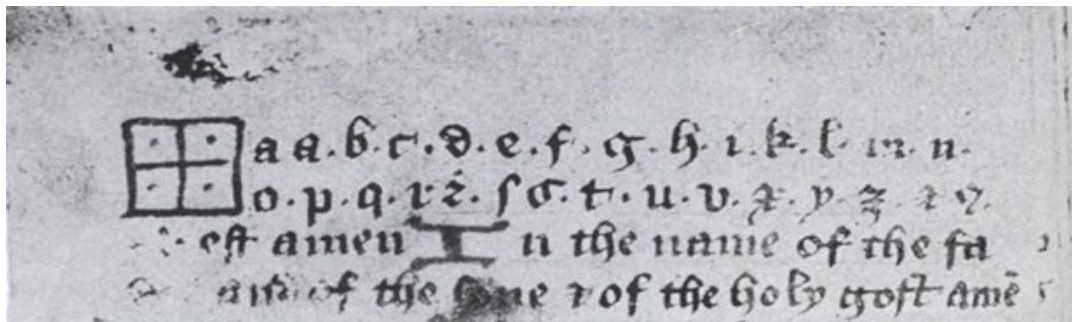 a a. b. c. d. e. f. g. h. ı. k. l. m. n.
o. p. q. r ꝛ. ſ s. t. u. v. x. y. z. ⁊ ꝯ.
est amen In the name of the fa
of the sone ⁊ of the holy gost amē